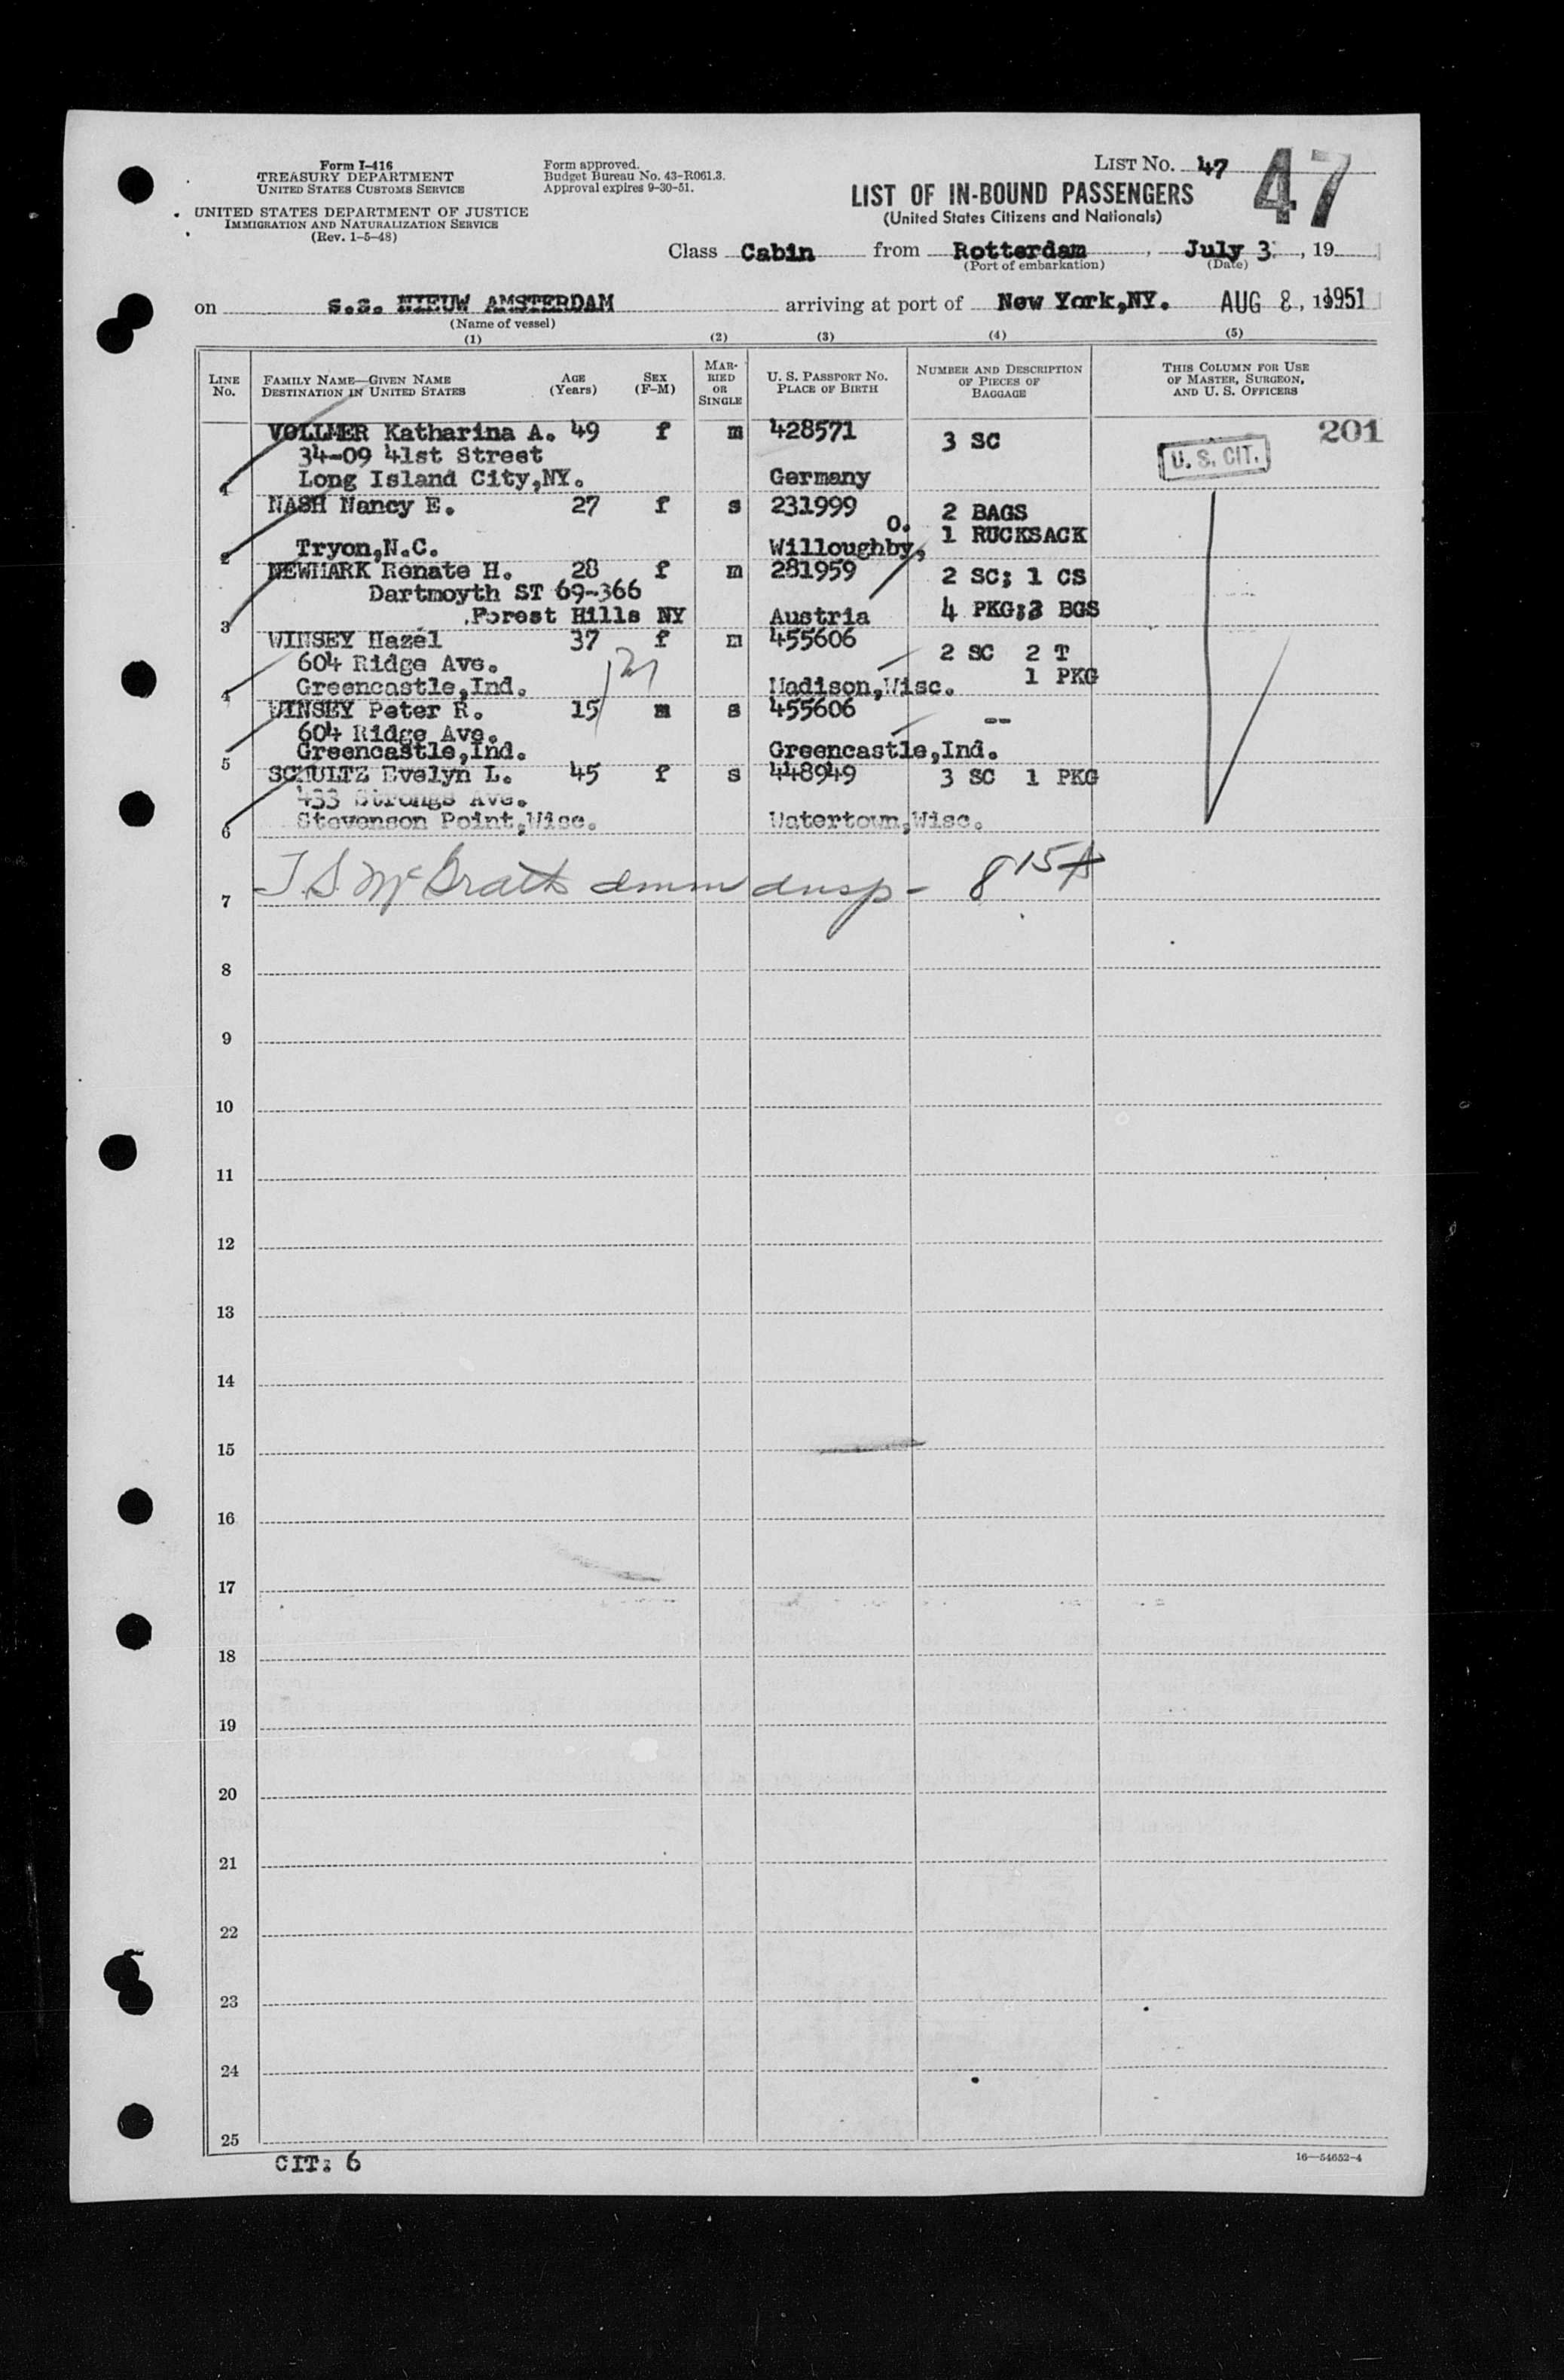 Form I-416
TREASURY DEPARTMENT
UNITED STATES CUSTOMS SERVICE
UNITED STATES DEPARTMENT OF JUSTICE
IMMIGRATION AND NATURALIZATION SERVICE
(Rev. 1-5-48)
Form approved.
Budget Bureau No. 43-R061.3.
Approval expires 9-30-51.
LIST NO. 47
47
LIST OF IN-BOUND PASSENGERS
(United States Citizens and Nationals)
Class Cabin from Rotterdam, July 3, 19
(Port of embarkation) (Date)
on s.s. NIEUW AMSTERDAM arriving at port of New York,NY. AUG 8, 1951
(Name of vessel)
(1) (2) (3) (4) (5)
LINE NO.
FAMILY NAME—GIVEN NAME
DESTINATION IN UNITED STATES
AGE (Years)
SEX (F-M)
MARRIED OR SINGLE
U. S. PASSPORT NO.
PLACE OF BIRTH
NUMBER AND DESCRIPTION OF PIECES OF BAGGAGE
THIS COLUMN FOR USE OF MASTER, SURGEON, AND U. S. OFFICERS
VOLLMER Katharina A. 49 f m 428571 3 SC 201
34-09 41st Street U. S. CIT.
1 Long Island City,NY. Germany
NASH Nancy E. 27 f s 231999 2 BAGS
O. 1 RUCKSACK
2 Tryon,N.C. Willoughby,
NEWMARK Renate H. 28 f m 281959 2 SC; 1 CS
Dartmoyth ST 69-366
3 Forest Hills NY Austria 4 PKG;3 BGS
WINSEY Hazel 37 f m 455606 2 SC 2 T
604 Ridge Ave. 1 PKG
4 Greencastle,Ind. Madison,Wisc.
WINSEY Peter R. 15 m s 455606 --
604 Ridge Ave.
5 Greencastle,Ind. Greencastle,Ind.
SCHULTZ Evelyn L. 45 f s 448949 3 SC 1 PKG
433 Strongs Ave.
6 Stevenson Point,Wisc. Watertown,Wisc.
7 T S McGrath Imm Insp - 8 15 A
8
9
10
11
12
13
14
15
16
17
18
19
20
21
22
23
24
25
CIT: 6
16—54652-4